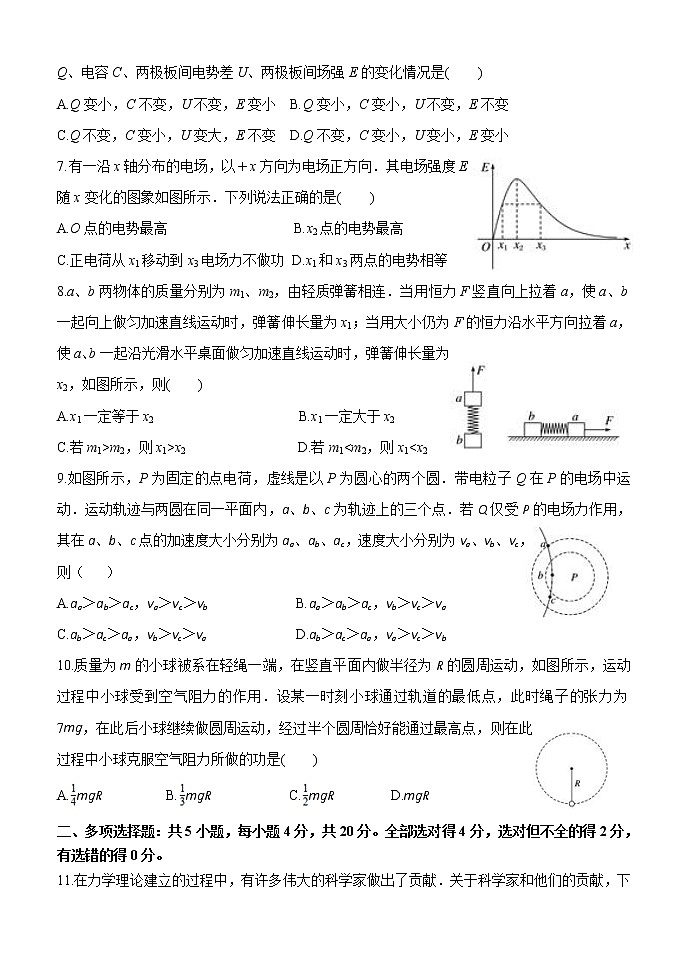 Q、电容 C、两极板间电势差 U、两极板间场强 E 的变化情况是(　　)
A.Q 变小，C 不变，U 不变，E 变小　B.Q 变小，C 变小，U 不变，E 不变
C.Q 不变，C 变小，U 变大，E 不变　D.Q 不变，C 变小，U 变小，E 变小
7.有一沿 x 轴分布的电场，以＋x 方向为电场正方向．其电场强度 E
随 x 变化的图象如图所示．下列说法正确的是(　　)
A.O 点的电势最高　B.x₂ 点的电势最高
C.正电荷从 x₁ 移动到 x₃ 电场力不做功　D.x₁ 和 x₃ 两点的电势相等
E
O x₁ x₂ x₃ x
8.a、b 两物体的质量分别为 m₁、m₂，由轻质弹簧相连．当用恒力 F 竖直向上拉着 a，使 a、b
一起向上做匀加速直线运动时，弹簧伸长量为 x₁；当用大小仍为 F 的恒力沿水平方向拉着 a，
使 a、b 一起沿光滑水平桌面做匀加速直线运动时，弹簧伸长量为
x₂，如图所示，则(　　)
A.x₁ 一定等于 x₂　B.x₁ 一定大于 x₂
C.若 m₁>m₂，则 x₁>x₂　D.若 m₁<m₂，则 x₁<x₂
F
a
b
b a F
9.如图所示，P 为固定的点电荷，虚线是以 P 为圆心的两个圆．带电粒子 Q 在 P 的电场中运
动．运动轨迹与两圆在同一平面内，a、b、c 为轨迹上的三个点．若 Q 仅受 P 的电场力作用，
其在 a、b、c 点的加速度大小分别为 aₐ、a_b、a_c，速度大小分别为 vₐ、v_b、v_c，
则（　　）
A.aₐ＞a_b＞a_c，vₐ＞v_c＞v_b　B.aₐ＞a_b＞a_c，v_b＞v_c＞vₐ
C.a_b＞a_c＞aₐ，v_b＞v_c＞vₐ　D.a_b＞a_c＞aₐ，vₐ＞v_c＞v_b
a
b P
c
10.质量为 m 的小球被系在轻绳一端，在竖直平面内做半径为 R 的圆周运动，如图所示，运动
过程中小球受到空气阻力的作用．设某一时刻小球通过轨道的最低点，此时绳子的张力为
7mg，在此后小球继续做圆周运动，经过半个圆周恰好能通过最高点，则在此
过程中小球克服空气阻力所做的功是(　　)
A.1/4mgR　B.1/3mgR　C.1/2mgR　D.mgR
R
二、多项选择题：共 5 小题，每小题 4 分，共 20 分。全部选对得 4 分，选对但不全的得 2 分，
有选错的得 0 分。
11.在力学理论建立的过程中，有许多伟大的科学家做出了贡献．关于科学家和他们的贡献，下